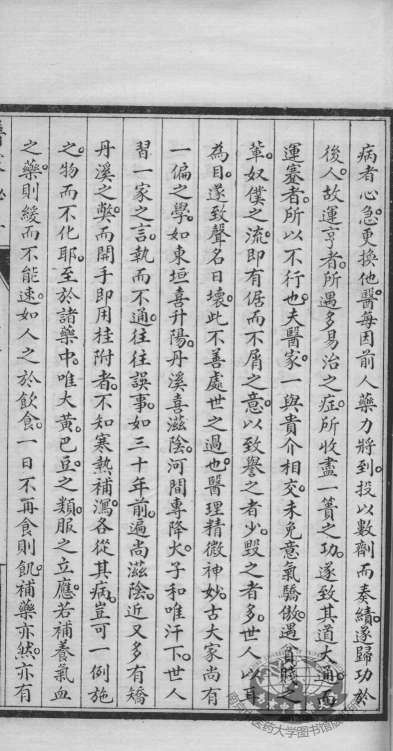 病者心急。更換他醫。每因前人藥力將到。投以數劑而奏績。遂歸功於
後人。故運亨者。所遇多易治之症。所收盡一簣之功。遂致其道大通。而
運蹇者。所以不行也。夫醫家一與貴介相交。未免意氣驕傲。遇貧賤之
輩。奴僕之流。即有倨而不屑之意。以致譽之者少。毀之者多。世人以耳
為目。遂致聲名日壞。此不善處世之過也。醫理精微神妙。古大家尚有
一偏之學。如東垣喜升陽。丹溪喜滋陰。河間專降火。子和唯汗下。世人
習一家之言。執而不通。往往誤事。如三十年前。遍尚滋陰。近又多有矯
丹溪之弊。而開手即用桂附者。不知寒熱補瀉。各從其病。豈可一例施
之。物而不化耶。至於諸藥中。唯大黃。巴豆之類。服之立應。若補養氣血
之藥。則緩而不能速。如人之於飲食。一日不再食則飢。補藥亦然。亦有